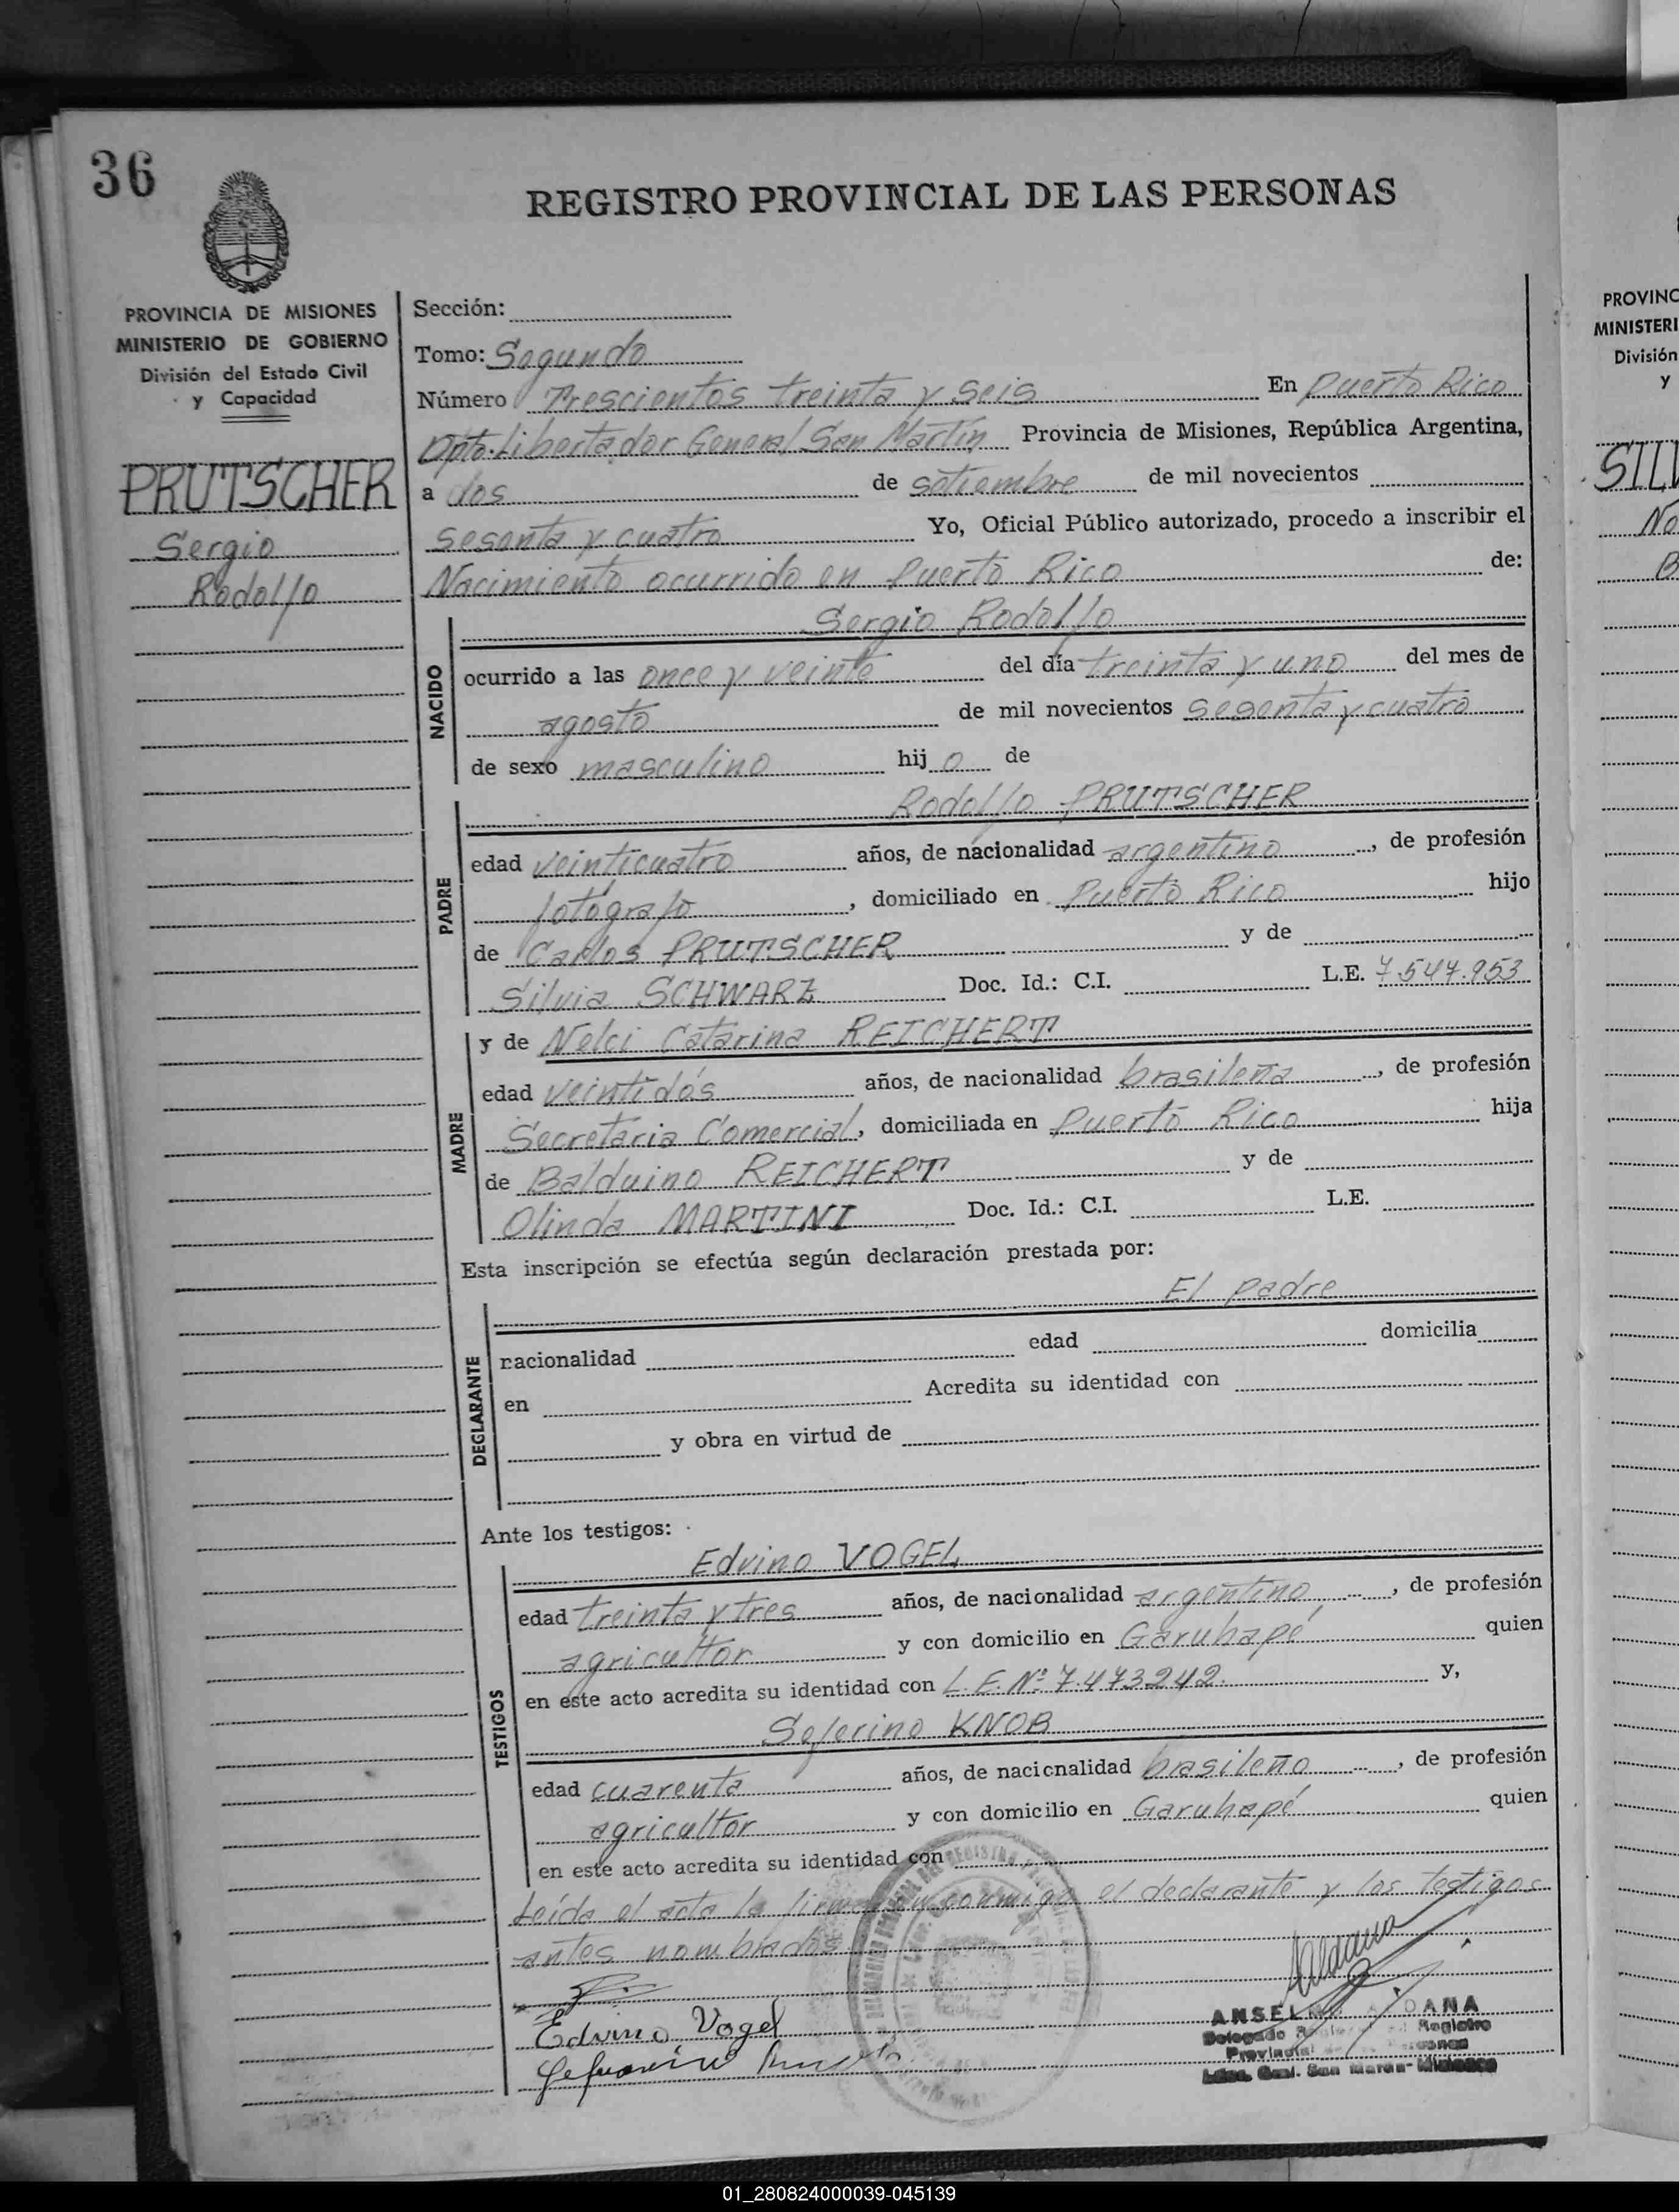 36
REGISTRO PROVINCIAL DE LAS PERSONAS
PROVINCIA DE MISIONES
MINISTERIO DE GOBIERNO
División del Estado Civil
y Capacidad
PRUTSCHER
Sergio
Rodolfo
Sección:
Tomo: Segundo
Número Trescientos treinta y seis En Puerto Rico
Dpto. Libertador General San Martín Provincia de Misiones, República Argentina,
a dos de setiembre de mil novecientos
sesenta y cuatro Yo, Oficial Público autorizado, procedo a inscribir el
Nacimiento ocurrido en Puerto Rico de:
NACIDO
Sergio Rodolfo
ocurrido a las once y veinte del día treinta y uno del mes de
agosto de mil novecientos sesenta y cuatro
de sexo masculino hij o de
PADRE
Rodolfo PRUTSCHER
edad veinticuatro años, de nacionalidad argentino, de profesión
fotógrafo, domiciliado en Puerto Rico hijo
de Carlos PRUTSCHER y de
Silvia SCHWARZ Doc. Id.: C.I. L.E. 7.547.953
MADRE
y de Nelci Catarina REICHERT
edad veintidós años, de nacionalidad brasileña, de profesión
Secretaria Comercial, domiciliada en Puerto Rico hija
de Balduino REICHERT y de
Olinda MARTINI Doc. Id.: C.I. L.E.
Esta inscripción se efectúa según declaración prestada por:
DECLARANTE
El padre
nacionalidad edad domicilia
en Acredita su identidad con
y obra en virtud de
Ante los testigos:
TESTIGOS
Edvino VOGEL
edad treinta y tres años, de nacionalidad argentino, de profesión
agricultor y con domicilio en Garuhapé quien
en este acto acredita su identidad con L.E. Nº 7.473242. y,
Seferino KNOB
edad cuarenta años, de nacionalidad brasileño, de profesión
agricultor y con domicilio en Garuhapé quien
en este acto acredita su identidad con
Leída el acta la firman conmigo el declarante y los testigos
antes nombrados
Edvino Vogel
Aldana
ANSELMO ALDANA
Delegado Registro
Provincial
Ldor. Gral. San Martín - Misiones
PROVINC
MINISTERI
División
y
SILV
No
B
01_280824000039-045139